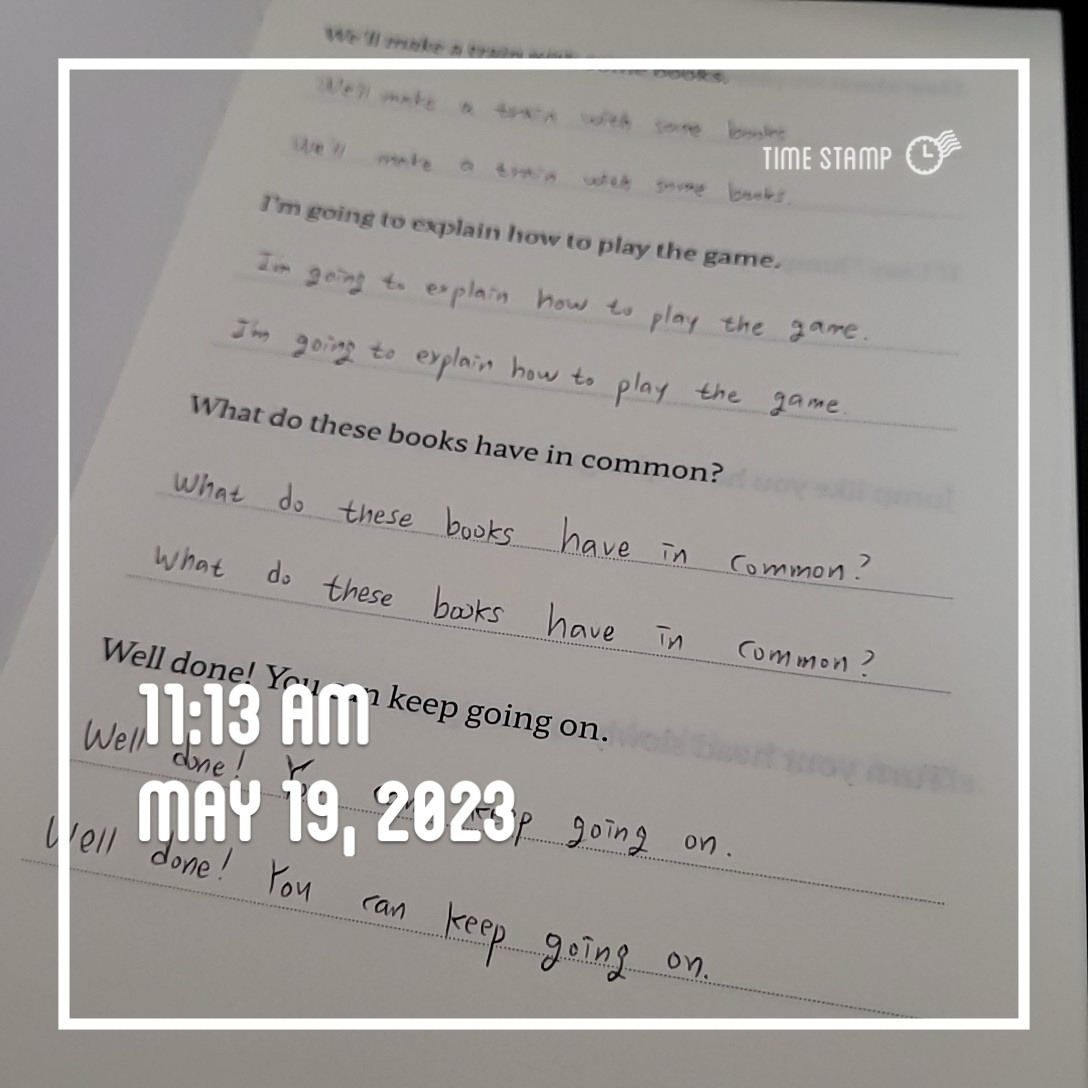 We'll make a train with some books.
We'll make a train with some books
TIME STAMP
We'll make a train with some books.
I'm going to explain how to play the game.
I'm going to explain how to play the game.
I'm going to explain how to play the game.
What do these books have in common?
What do these books have in common?
What do these books have in common?
Well done! You can keep going on.
11:13 AM
Well done! You can keep going on.
MAY 19, 2023
Well done! You can keep going on.